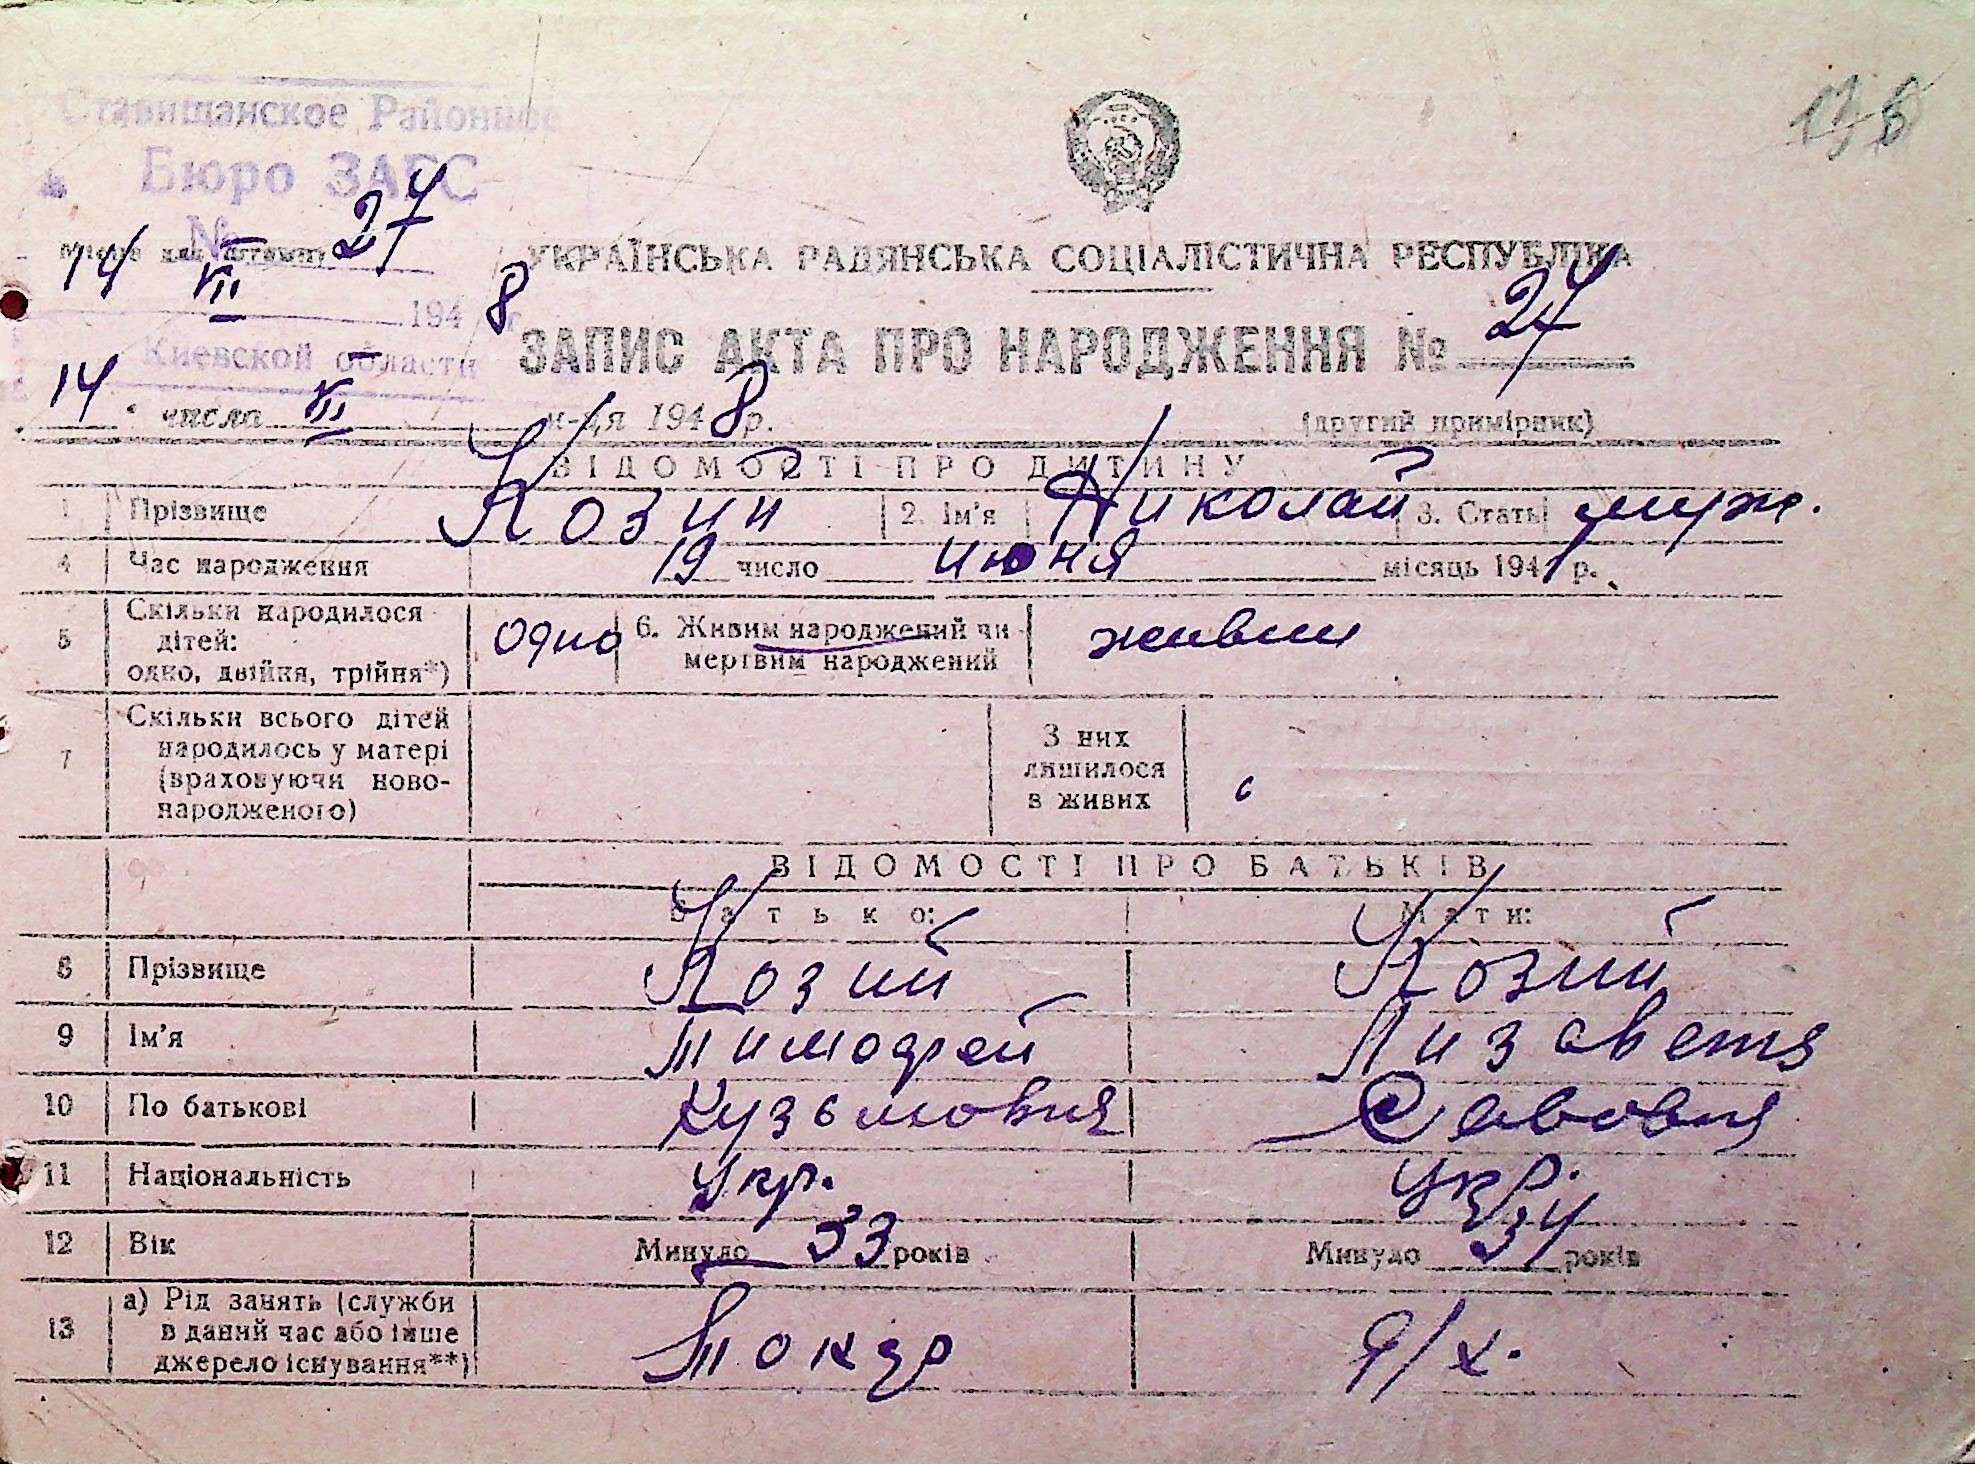 Ставищанское Районное
Бюро ЗАГС
№ 27
Місце для штампу
14 VII 1948 г.
Киевской области
136
УКРАЇНСЬКА РАДЯНСЬКА СОЦІАЛІСТИЧНА РЕСПУБЛІКА
ЗАПИС АКТА ПРО НАРОДЖЕННЯ № 27
14 числа VII м-ця 1948 р.
(другий примірник)
ВІДОМОСТІ ПРО ДИТИНУ
1 Прізвище Козий 2. Ім'я Николай 3. Стать муж.
4 Час народження 19 число июня місяць 1941 р.
5 Скільки народилося дітей: одно, двійня, трійня*) одно 6. Живим народжений чи мертвим народжений живым
7 Скільки всього дітей народилось у матері (враховуючи новонародженого) З них лишилося в живих
ВІДОМОСТІ ПРО БАТЬКІВ
Батько: Мати:
8 Прізвище Козий Козий
9 Ім'я Тимофей Лизавета
10 По батькові Кузьмовия Савовна
11 Національність Укр. Укр.
12 Вік Минуло 33 років Минуло 34 років
13 а) Рід занять (служби в даний час або інше джерело існування**) Токар д/х.